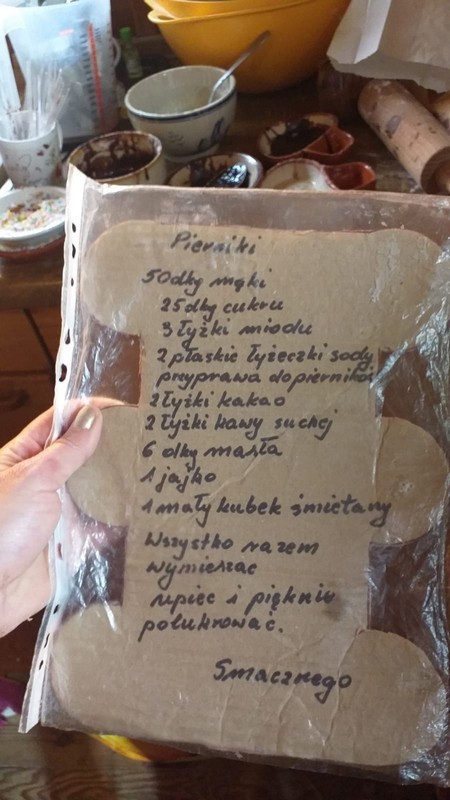 Pierniki
50dkg mąki
25dkg cukru
3 łyżki miodu
2 płaskie łyżeczki sody
przyprawa do pierników
2 łyżki kakao
2 łyżki kawy suchej
6 dkg masła
1 jajko
1 mały kubek śmietany
Wszystko razem
wymieszać
upiec i pięknie
polukrować.
Smacznego